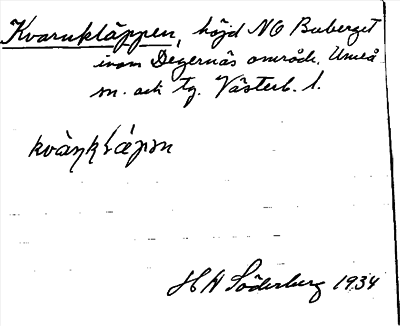 Kvarnkläppen, höjd NO Buberget
inom Degernäs område, Umeå
sn. och tg. Västerb. l.
H A Söderberg 1934